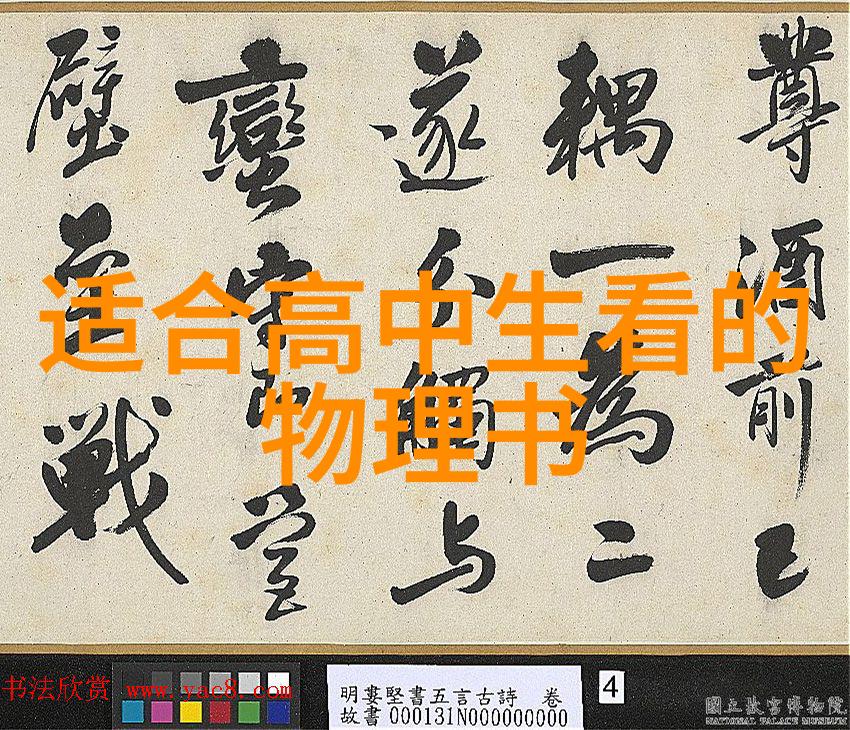 适合高中生看的
物理书
尊酒前已
耦一為二
遂分觸与
蠻
壁 戰
书法欣赏 www.yac8.com
明婁堅書五言古詩 卷
故書 000131N000000000
4
國立故宮博物院
NATIONAL PALACE MUSEUM